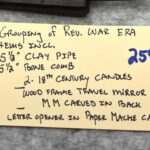 GROUPING OF REV. WAR ERA
ITEMS INCL.
5½" CLAY PIPE
5½" BONE COMB
2- 18TH CENTURY CANDLES
WOOD FRAME TRAVEL MIRROR
M M CARVED IN BACK
LETER OPENER IN PAPER MACHE CA
25